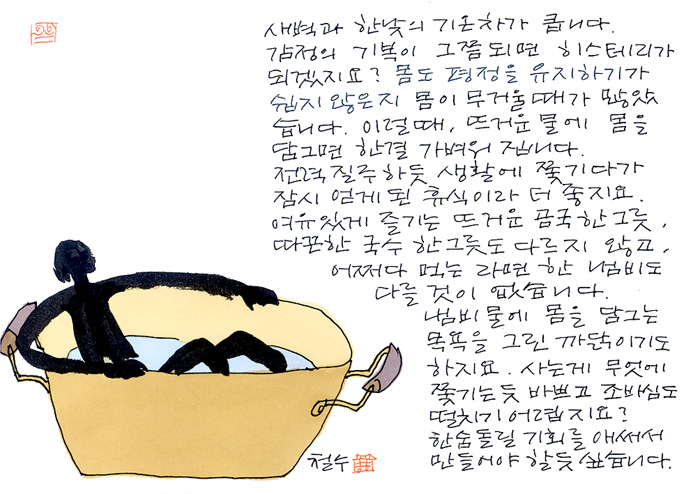 새벽과 한낮의 기온차가 큽니다.
감정의 기복이 그쯤되면 히스테리가
되겠지요? 몸도 평정을 유지하기가
쉽지 않은지 몸이 무거울때가 많았
습니다. 이럴때, 뜨거운 물에 몸을
담그면 한결 가벼워 집니다.
전력질주하듯 생활에 쫓기다가
잠시 얻게된 휴식이라 더 좋지요.
여유있게 즐기는 뜨거운 곰국한그릇,
따끈한 국수 한그릇도 다르지 않고,
어쩌다 먹는 라면 한 냄비도
다를 것이 없습니다.
냄비물에 몸을 담그는
목욕을 그린 까닭이기도
하지요. 사는게 무엇에
쫓기는듯 바쁘고 조바심도
떨치기 어렵지요?
한숨돌릴 기회를 애써서
만들어야 할듯 싶습니다.
철수